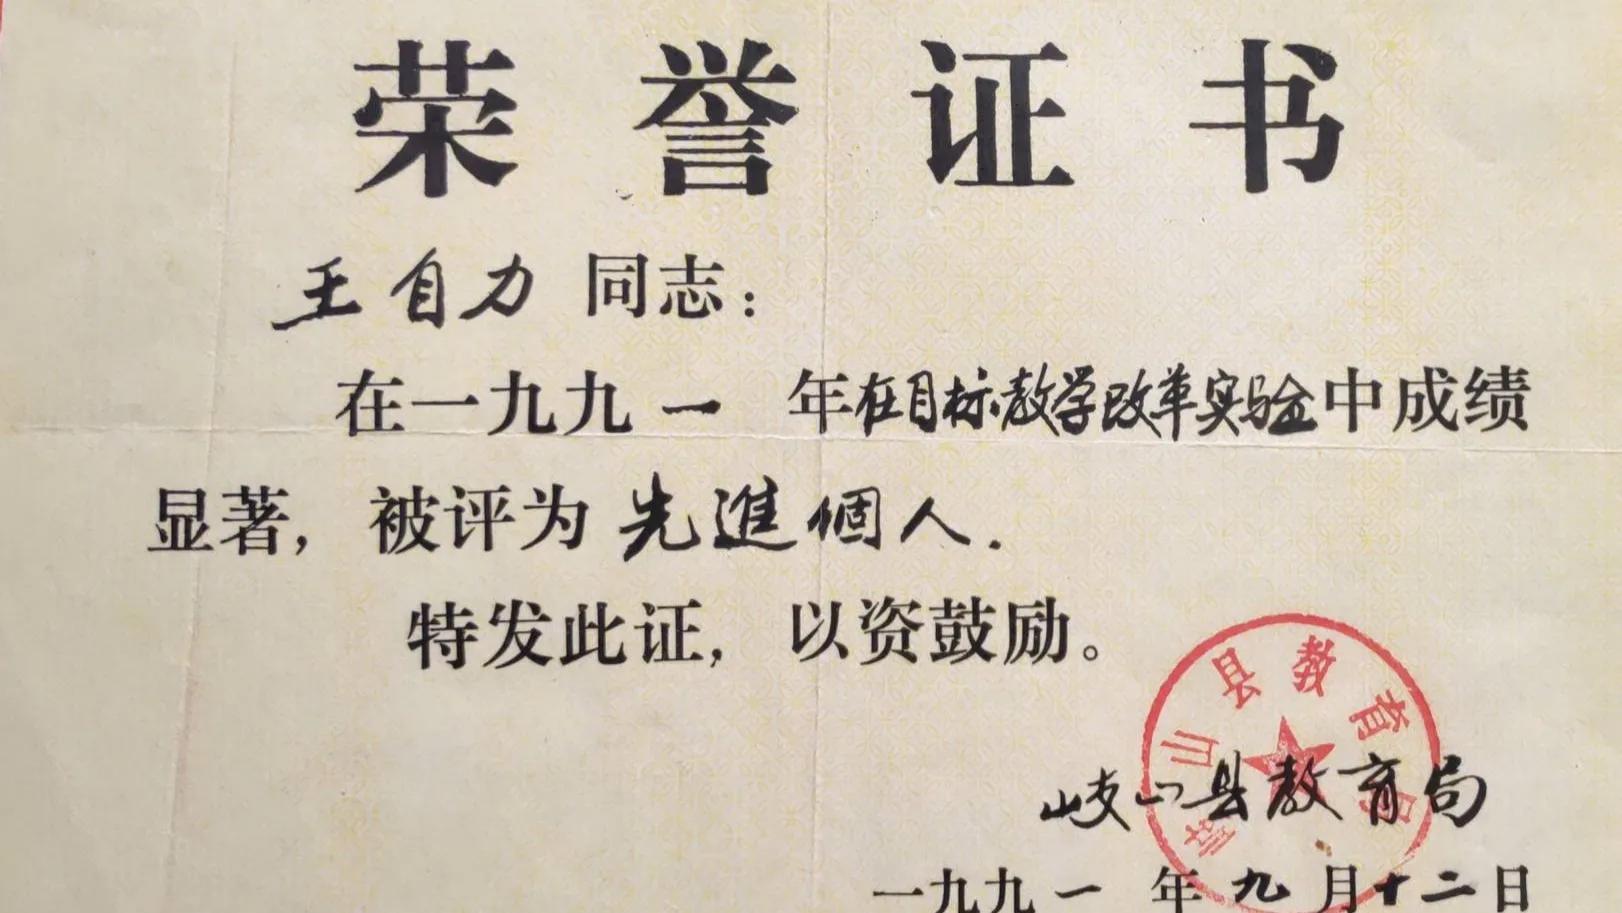 荣誉证书
王自力同志：
在一九九一年在目标教学改革实验中成绩
显著，被评为先進個人.
特发此证，以资鼓励。
岐山县教育局
岐山县教育局
一九九一年九月十二日